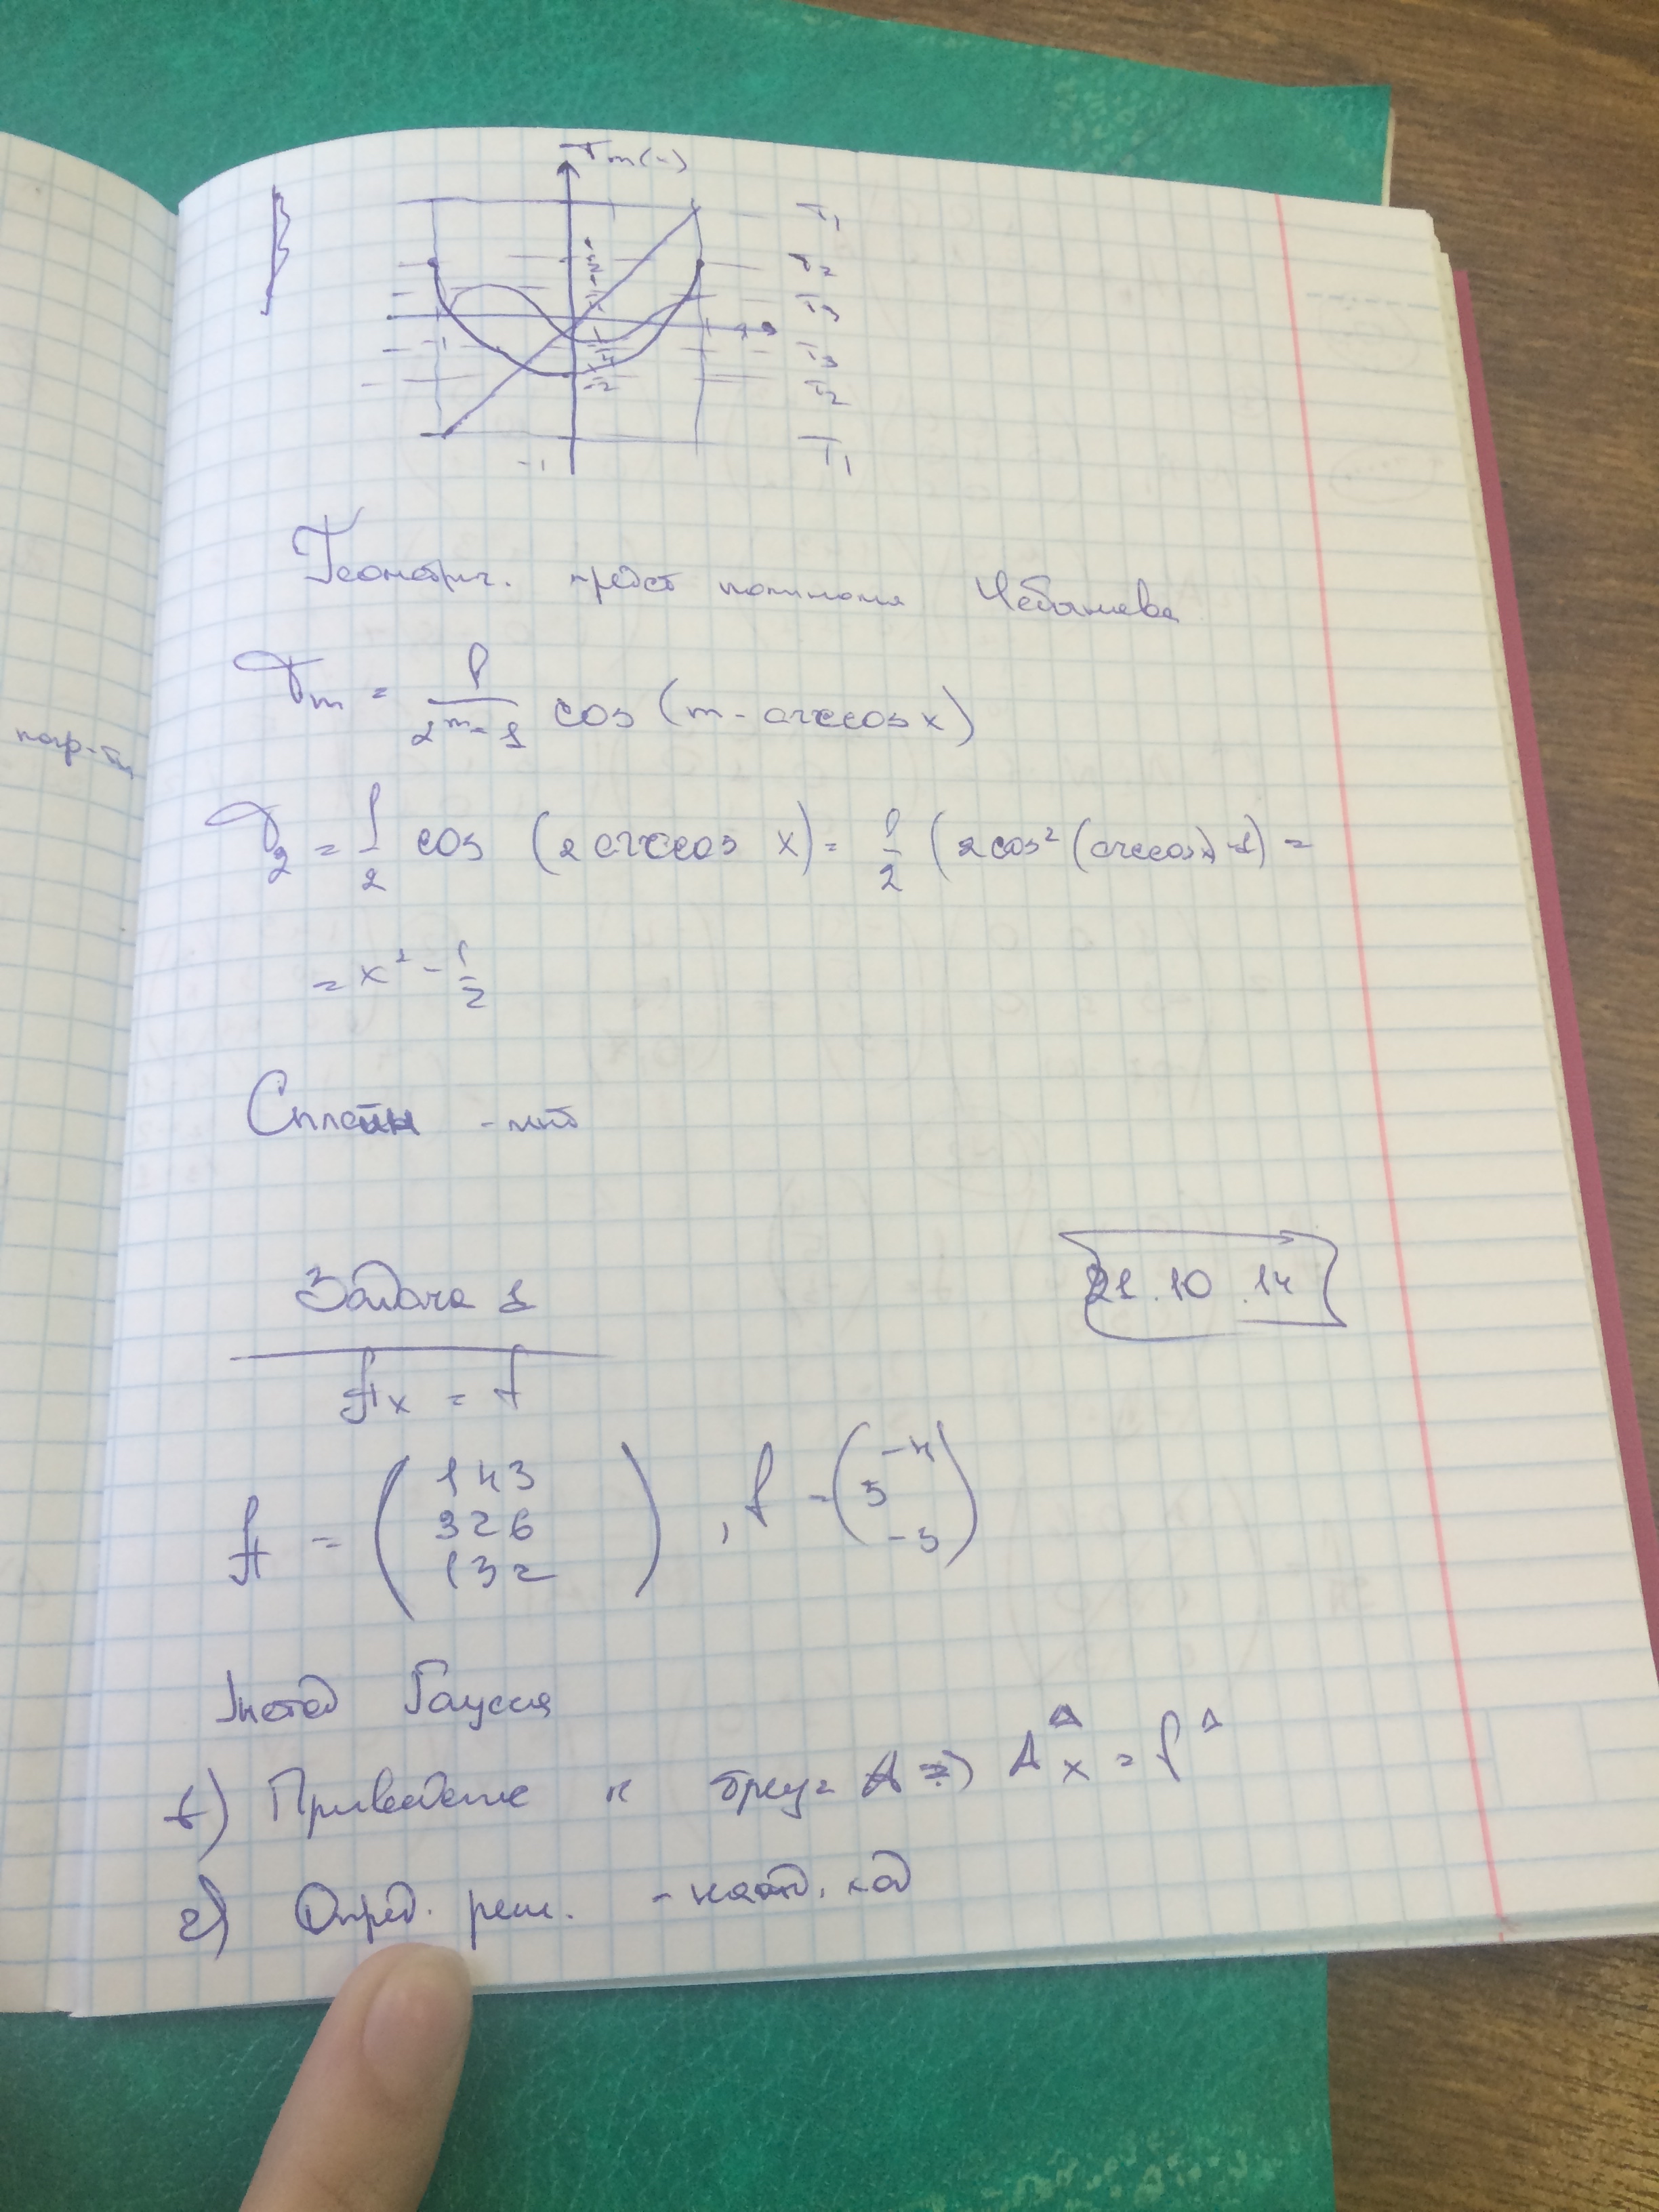 Tm(x)
T1
T2
T3
T3
T2
T1
-1
Геометрич. предст полинома Чебышева
Tm = 1/2^(m-1) cos (m · arccos x)
T2 = 1/2 cos (2 arccos x) = 1/2 (2cos² (arccos x) - 1) =
= x² - 1/2
погр-ти
Сплайн
Задача 1
21.10.14
Ax = f
A = (1 4 3
3 2 6
1 3 2), f = (-4
5
-5)
Метод Гаусса
1) Приведение к треуг A ⇒ A^Δ x = f^Δ
2) Опред. реш. ход